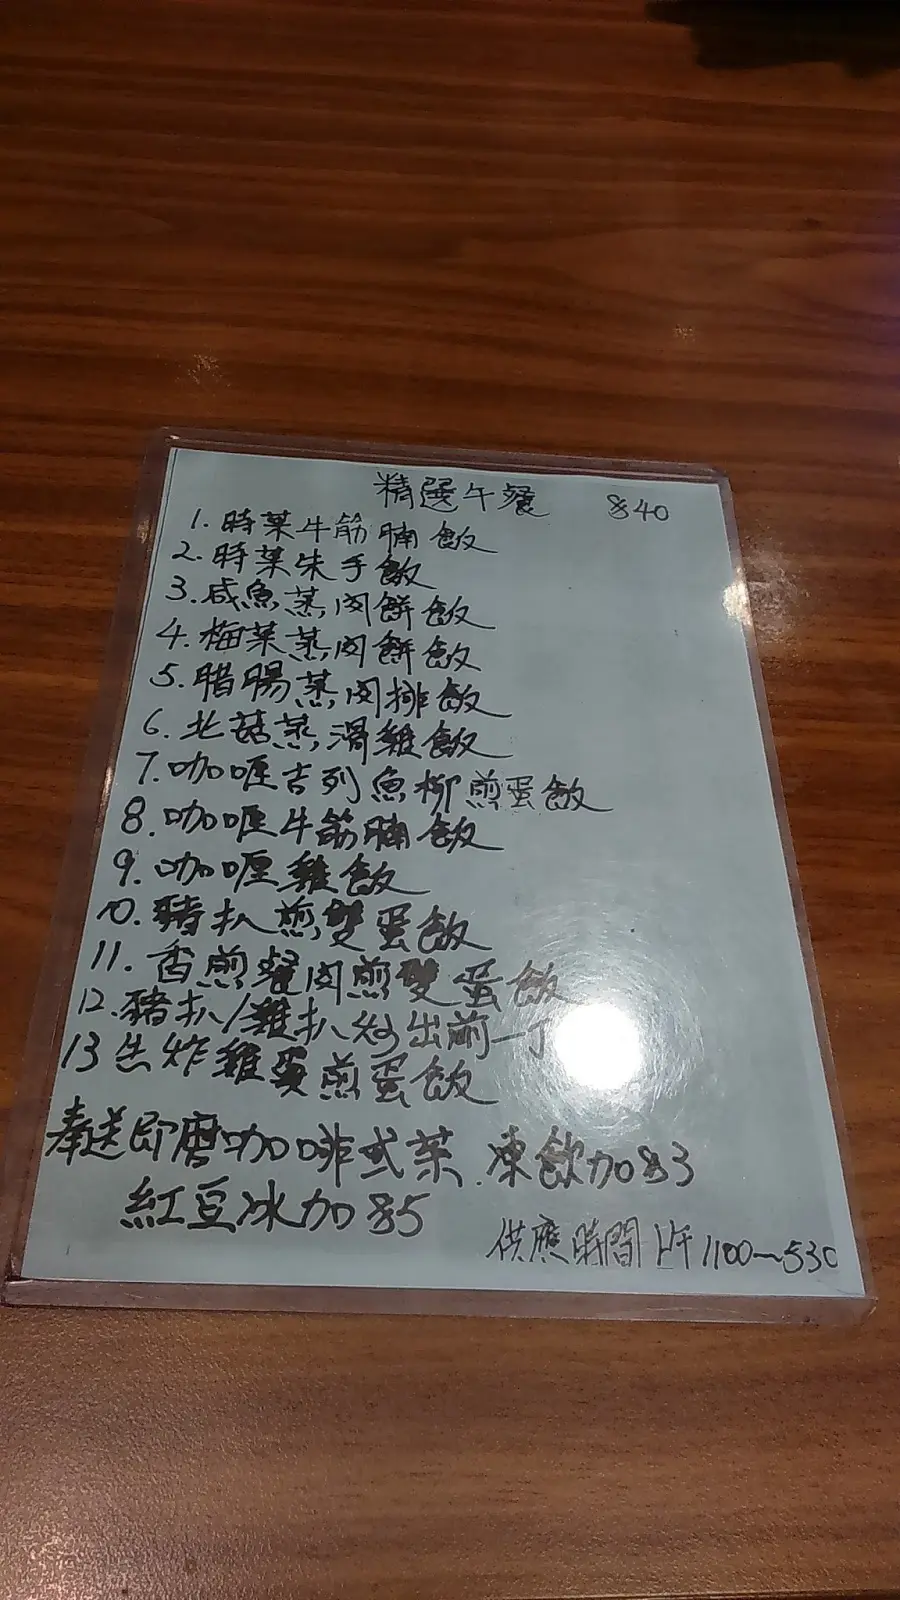 精選午餐 $40
1. 時菜牛筋腩飯
2. 時菜朱手飯
3. 咸魚蒸肉餅飯
4. 梅菜蒸肉餅飯
5. 腊腸蒸肉排飯
6. 北菇蒸滑雞飯
7. 咖喱吉列魚柳煎蛋飯
8. 咖喱牛筋腩飯
9. 咖喱雞飯
10. 豬扒煎雙蛋飯
11. 香煎餐肉煎雙蛋飯
12. 豬扒/雞扒炒出前一丁
13 生炸雞翼煎蛋飯
奉送即磨咖啡或茶.凍飲加$3
紅豆冰加$5
供應時間 上午1100~530